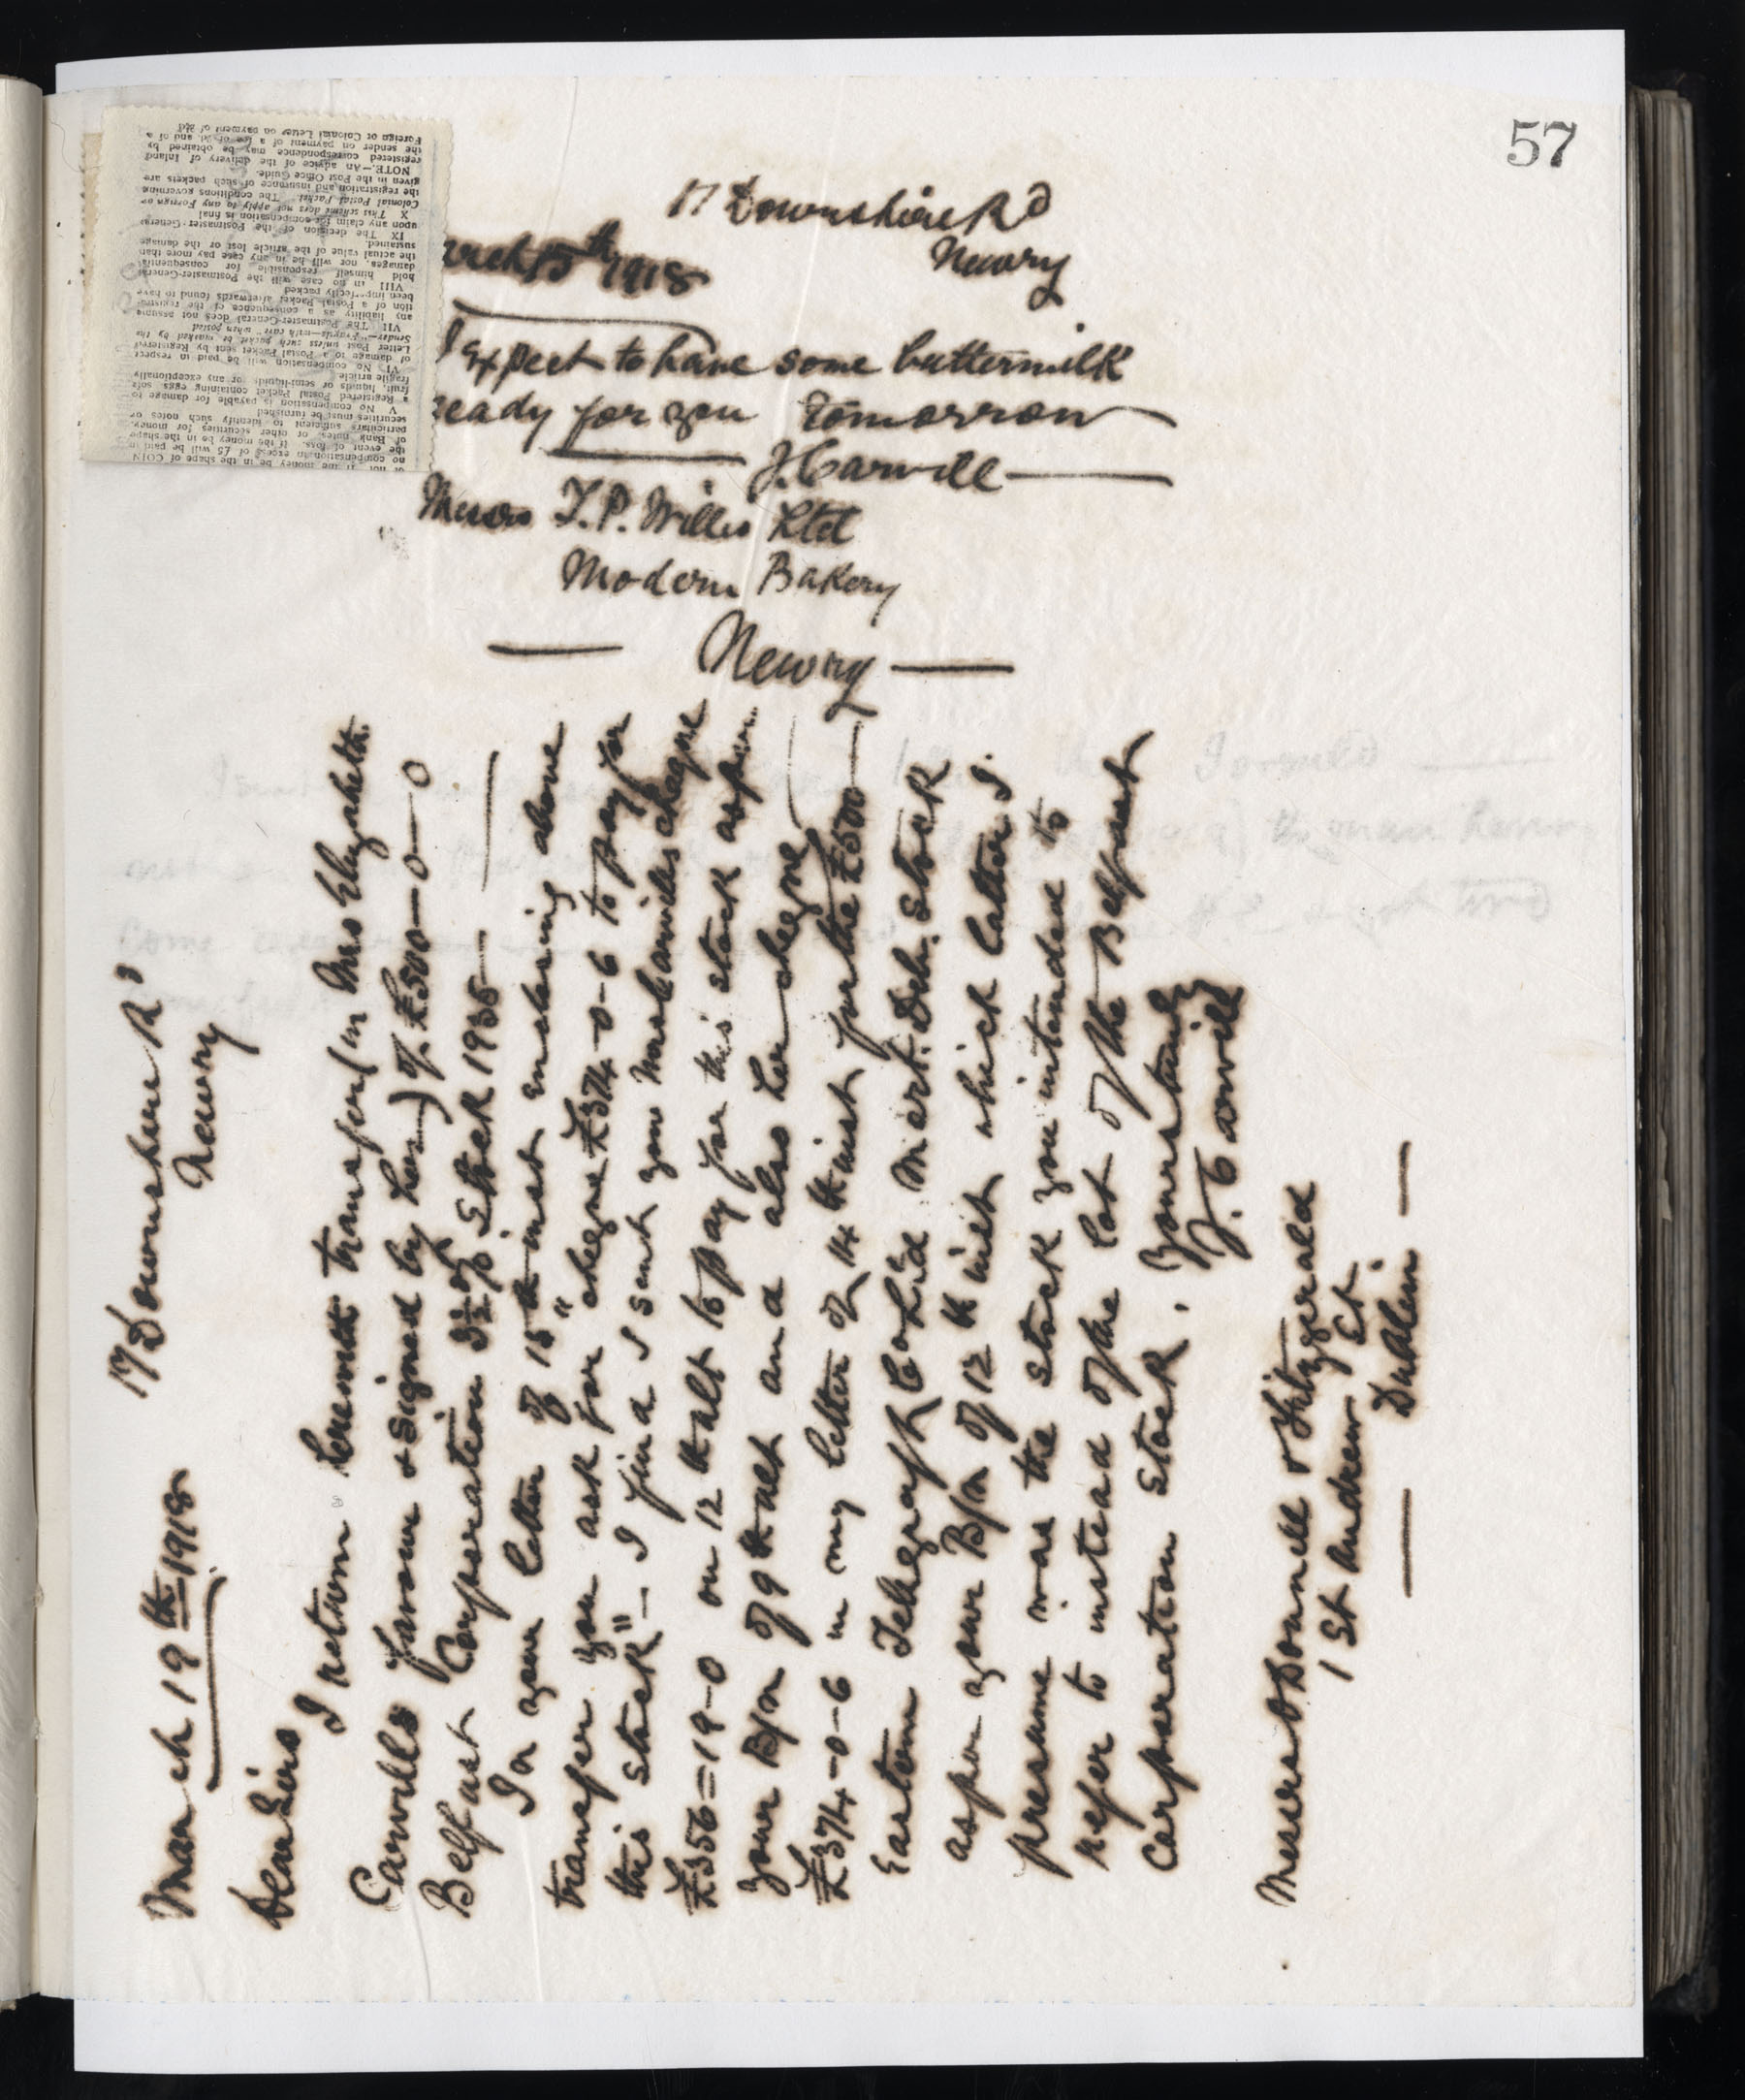 57
17 Downshire Rd
Newry
arch 15th 1918
I expect to have some buttermilk
ready for you tomorrow
J. Carvill
Messrs T.P. Willis Ltd
Modern Bakery
Newry
March 19th 1918
17 Downshire Rd
Newry
Dear Sirs
I return herewith transfer (in Mrs Elizabeth
Carvills favour & signed by her) of £500-0-0
Belfast Corporation 3½ % Stock 1935
In your letter of 15th inst enclosing above
transfer you ask for "cheque £374-0-6 to pay for
this stock" - I find I sent you Mrs Carvills cheque
£356=19-0 on 12th ult to pay for this stock as per
your B/n of 9th ult and also her cheque
£374-0-6 in my letter of 14th inst for the £500
Eastern Telegraph Co Ltd Mort. Deb. Stock
as per your B/n of 12th inst which latter I
presume was the stock you intended to
refer to instead of the lot of the Belfast
Corporation Stock. Yours truly
J. Carvill
Messrs O'Donnell & Fitzgerald
1 St Andrew St
Dublin
no compensation in excess of £5 will be paid in
the event of loss. If the money be in the shape
of Bank notes or other securities for money,
particulars sufficient to identify such notes or
securities must be furnished
V No compensation is payable for damage to
a Registered Postal Packet containing eggs, soft
fruit, liquids or semi-liquids, or any exceptionally
fragile article.
VI No compensation will be paid in respect
of damage to a Postal Packet sent by Registered
Letter Post unless such packet be marked by the
Sender—"Fragile—with care" when posted
VII The Postmaster-General does not assume
any liability as a consequence of the registra-
tion of a Postal Packet afterwards found to have
been imperfectly packed
VIII In no case will the Postmaster-General
hold himself responsible for consequential
damages, nor will he in any case pay more than
the actual value of the article lost or the damage
sustained.
IX The decision of the Postmaster-General
upon any claim for compensation is final
X This scheme does not apply to any Foreign or
Colonial Postal Packet. The conditions governing
the registration and insurance of such packets are
given in the Post Office Guide.
NOTE.—An advice of the delivery of Inland
registered correspondence may be obtained by
the sender on payment of a fee of 3d. and of a
Foreign or Colonial Letter on payment of 2½d